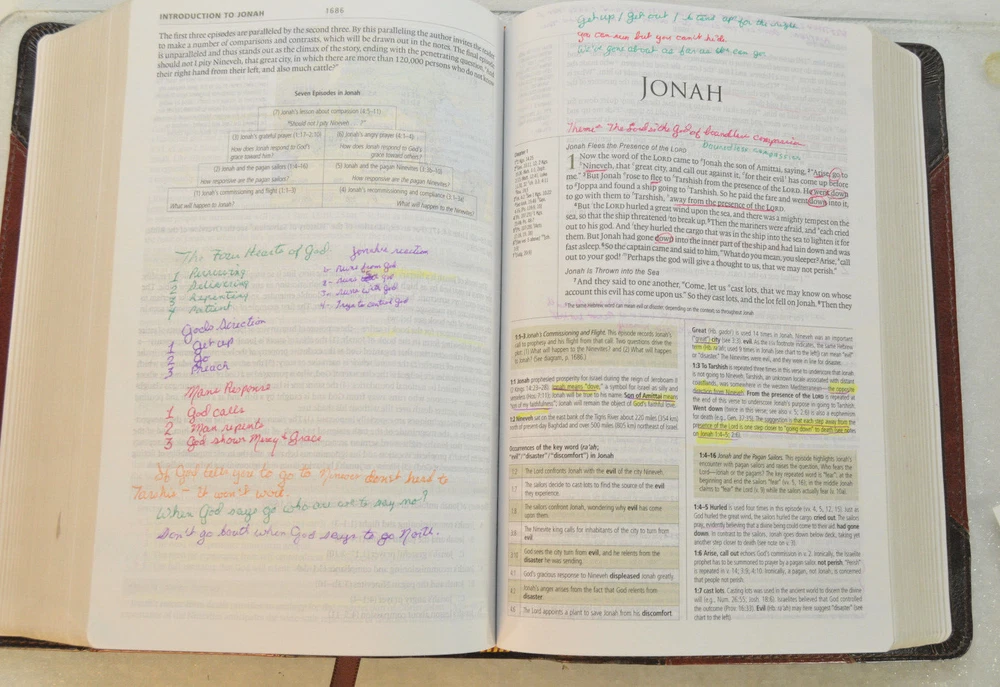 INTRODUCTION TO JONAH 1686
The first three episodes are paralleled by the second three. By this paralleling the author invites the reader
to make a number of comparisons and contrasts, which will be drawn out in the notes. The final episode
is unparalleled and thus stands out as the climax of the story, ending with the penetrating question, "And
should not I pity Nineveh, that great city, in which there are more than 120,000 persons who do not know
their right hand from their left, and also much cattle?"
Seven Episodes in Jonah
(7) Jonah's lesson about compassion (4:5–11)
"Should not I pity Nineveh . . . ?"
(3) Jonah's grateful prayer (1:17–2:10)
How does Jonah respond to God's
grace toward him?
(6) Jonah's angry prayer (4:1–4)
How does Jonah respond to God's
grace toward others?
(2) Jonah and the pagan sailors (1:4–16)
How responsive are the pagan sailors?
(5) Jonah and the pagan Ninevites (3:3b–10)
How responsive are the pagan Ninevites?
(1) Jonah's commissioning and flight (1:1–3)
What will happen to Jonah?
(4) Jonah's recommissioning and compliance (3:1–3a)
What will happen to the Ninevites?
The Four Hearts of God
1 Pursuing
2 Delivering
3 Repeating
4 Patient
Jonah's reaction
1- Runs from God
2- Runs God
3- Runs with God
4- Trys to control God
Gods Direction
1 Get up
2 Go
3 Preach
Mans Response
1 God calls
2 Man repents
3 God shows Mercy & Grace
If God tells you to go to don't head to
- It won't work.
When God says go who are we to say no?
Don't go South when God says to go North.
Get up / Get out / up for the
You can run but you can't hide.
We've gone about as far as we can go
JONAH
Theme + The Lord is the God of boundless compassion
boundless compassion
Jonah Flees the Presence of the LORD
1 Now the word of the LORD came to Jonah the son of Amittai, saying, "Arise, go to
Nineveh, that great city, and call out against it, for their evil has come up before
me." But Jonah rose to flee to Tarshish from the presence of the LORD. He went down
to Joppa and found a ship going to Tarshish. So he paid the fare and went down into it,
to go with them to Tarshish, away from the presence of the LORD.
But the LORD hurled a great wind upon the sea, and there was a mighty tempest on the
sea, so that the ship threatened to break up. Then the mariners were afraid, and each cried
out to his god. And they hurled the cargo that was in the ship into the sea to lighten it for
them. But Jonah had gone down into the inner part of the ship and had lain down and was
fast asleep. So the captain came and said to him, "What do you mean, you sleeper? Arise, call
out to your god! Perhaps the god will give a thought to us, that we may not perish."
Jonah Is Thrown into the Sea
And they said to one another, "Come, let us cast lots, that we may know on whose
account this evil has come upon us." So they cast lots, and the lot fell on Jonah. Then they
The same Hebrew word can mean evil or disaster, depending on the context; so throughout Jonah
1:1–3 Jonah's Commissioning and Flight. This episode records Jonah's
call to prophecy and his flight from that call. Two questions drive the
plot: (1) What will happen to the Ninevites? and (2) What will happen
to Jonah? (See diagram, p. 1686.)
1:1 Jonah prophesied prosperity for Israel during the reign of Jeroboam II
(2 Kings 14:23–28). Jonah means "dove," a symbol for Israel as silly and
senseless (Hos. 7:11); Jonah will be true to his name. Son of Amittai means
"son of my faithfulness"; Jonah will remain the object of God's faithful love.
1:2 Nineveh sat on the east bank of the Tigris River about 220 miles (354 km)
north of present-day Baghdad and over 500 miles (805 km) northeast of Israel.
Occurrences of the key word (ra'ah;
"evil"/"disaster"/"discomfort") in Jonah
1:2 The Lord confronts Jonah with the evil of the city Nineveh.
1:7 The sailors decide to cast lots to find the source of the evil
they experience.
1:8 The sailors confront Jonah, wondering why evil has come
upon them.
3:8 The Ninevite king calls for inhabitants of the city to turn from
evil.
3:10 God sees the city turn from evil, and he relents from the
disaster he was sending.
4:1 God's gracious response to Nineveh displeased Jonah greatly.
4:2 Jonah's anger arises from the fact that God relents from
disaster.
4:6 The Lord appoints a plant to save Jonah from his discomfort.
Great (Hb. gadol) is used 14 times in Jonah. Nineveh was an important
("great") city (see 2:3). evil. As the esv footnote indicates, the same Hebrew
term (Hb. ra'ah; used 9 times in Jonah (see chart to the left) can mean "evil"
or "disaster." The Ninevites were evil, and they were in line for disaster.
1:3 To Tarshish is repeated three times in this verse to underscore that Jonah
is not going to Nineveh. Tarshish, an unknown locale associated with distant
coastlands, was somewhere in the western Mediterranean—the opposite
direction from Nineveh. From the presence of the LORD is repeated at
the end of this verse to underscore Jonah's purpose in going to Tarshish.
Went down (twice in this verse; see also v. 5; 2:6) is also a euphemism
for death (e.g., Gen. 37:35). The suggestion is that each step away from the
presence of the Lord is one step closer to "going down" to death (see notes
on Jonah 1:4–5; 2:6).
1:4–16 Jonah and the Pagan Sailors. This episode highlights Jonah's
encounter with pagan sailors and raises the question, Who fears the
Lord—Jonah or the pagans? The key repeated word is "fear," at the
beginning and end the sailors "fear" (vv. 5, 16), in the middle Jonah
claims to "fear" the Lord (v. 9) while the sailors actually fear (v. 10a).
1:4–5 Hurled is used four times in this episode (vv. 4, 5, 12, 15). Just as
God hurled the great wind, the sailors hurled the cargo. cried out. The sailors
pray, evidently believing that a divine being could come to their aid. had gone
down. In contrast to the sailors, Jonah goes down below deck, taking yet
another step closer to death (see note on v. 3).
1:6 Arise, call out echoes God's commission in v. 2. Ironically, the Israelite
prophet has to be summoned to prayer by a pagan sailor. not perish. "Perish"
is repeated in v. 14; 3:9; 4:10. Ironically, a pagan, not Jonah, is concerned
that people not perish.
1:7 cast lots. Casting lots was used in the ancient world to discern the divine
will (e.g., Num. 26:55; Josh. 18:6). Israelites believed God controlled
the outcome (Prov. 16:33). Evil (Hb. ra'ah) may here suggest "disaster" (see
chart to the left).